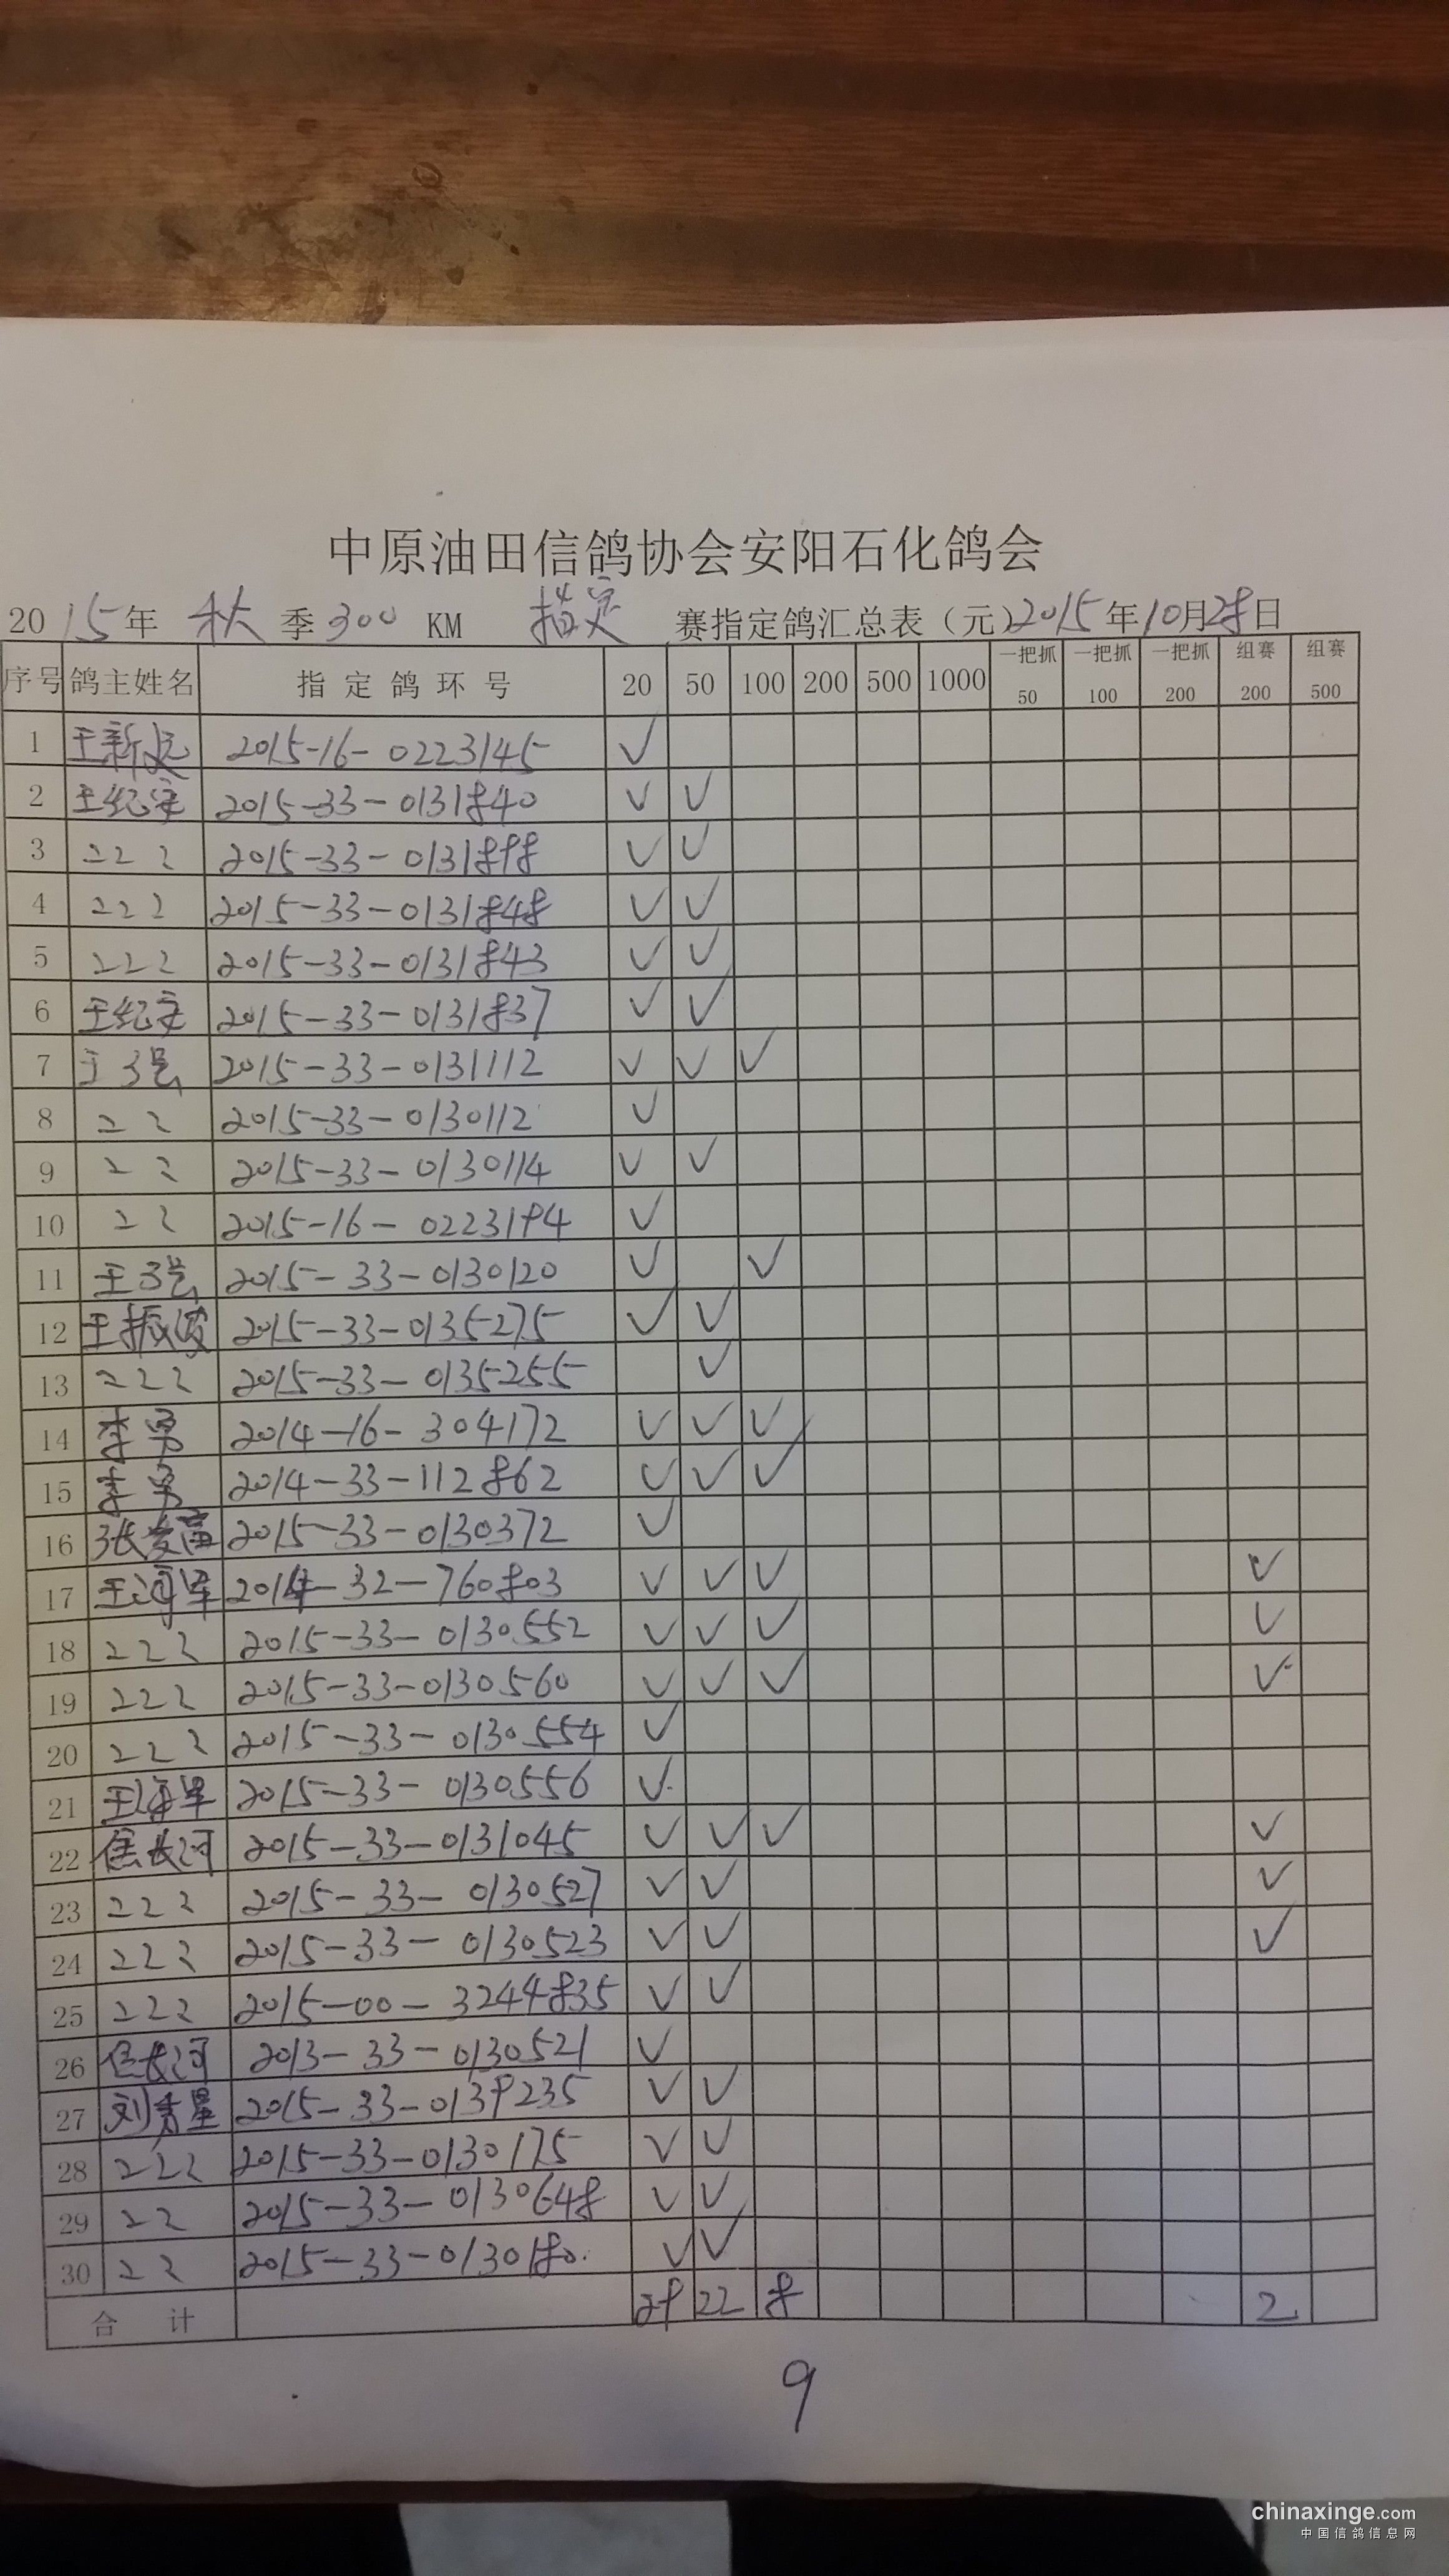 中原油田信鸽协会安阳石化鸽会
2015年 秋 季300 KM 指定 赛指定鸽汇总表（元）2015年10月28日
序号 鸽主姓名 指定鸽环号 20 50 100 200 500 1000 一把抓50 一把抓100 一把抓200 组赛200 组赛500
1 王新 2015-16-0223145 √
2 王纪 2015-33-0131840 √ √
3 2015-33-0131898 √ √
4 2015-33-0131848 √ √
5 2015-33-0131843 √ √
6 王纪 2015-33-0131837 √ √
7 王 2015-33-0131112 √ √ √
8 2015-33-0130112 √
9 2015-33-0130114 √ √
10 2015-16-0223194 √
11 王 2015-33-0130120 √ √
12 王振波 2015-33-0135275 √ √
13 2015-33-0135255 √
14 李勇 2014-16-304172 √ √ √
15 李勇 2014-33-112862 √ √ √
16 张发富 2015-33-0130372 √
17 王海军 2014-32-760803 √ √ √ √
18 2015-33-0130552 √ √ √ √
19 2015-33-0130560 √ √ √ √
20 2015-33-0130554 √
21 王海军 2015-33-0130556 √
22 焦长河 2015-33-0131045 √ √ √ √
23 2015-33-0130527 √ √ √
24 2015-33-0130523 √ √ √
25 2015-00-3244835 √ √
26 长河 2013-33-0130521 √
27 刘秀星 2015-33-0139235 √ √
28 2015-33-0130175 √ √
29 2015-33-0130648 √ √
30 2015-33-0130180 √ √
合计 29 22 8 2
9
chinaxinge.com
中国信鸽信息网